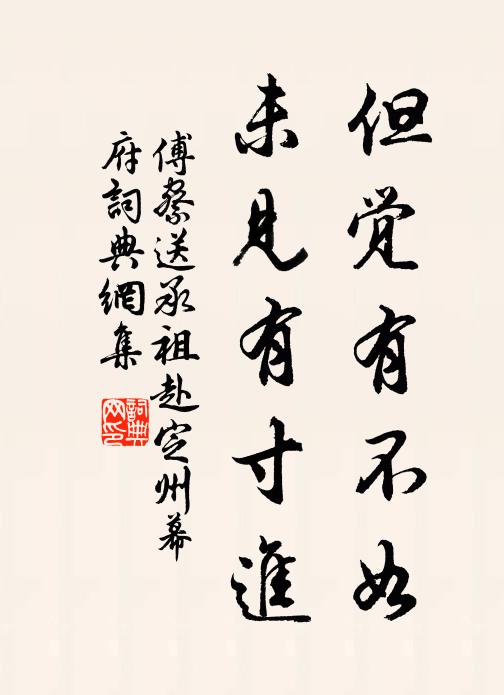 但觉有不如
未见有寸進
傅察送承祖赴定州幕
府詞典網集
詞典
网印